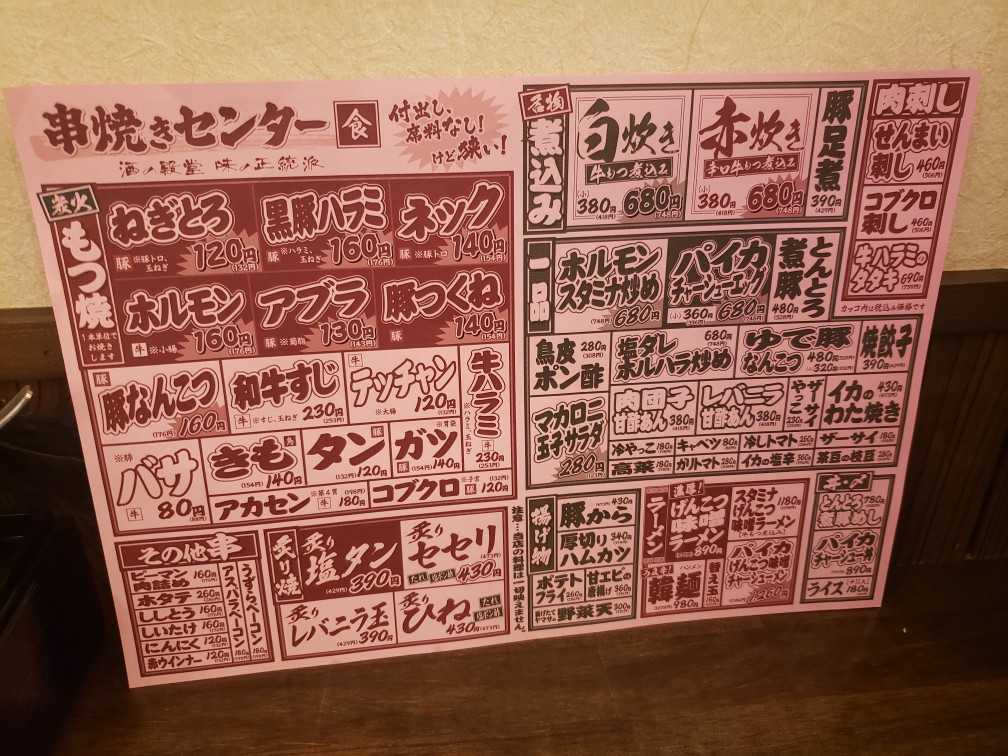 串焼きセンター 食
付出し、
席料なし!
けど狭い!
酒の殿堂 味の正統派
炭火
もつ焼
1本単位で
お焼き
します
ねぎとろ
豚 ※豚トロ、玉ねぎ
120円
(132円)
黒豚ハラミ
豚 ※ハラミ、玉ねぎ
160円
(176円)
ネック
豚 ※豚トロ
140円
(154円)
ホルモン
牛 ※小腸
160円
(176円)
アブラ
豚 ※胸脂
130円
(143円)
豚つくね
豚
140円
(154円)
豚
豚なんこつ
(176円) 160円
和牛すじ
牛 ※すじ、玉ねぎ
230円
(253円)
牛
テッチャン
※大腸
120円
(132円)
牛ハラミ
※ハラミ、玉ねぎ
牛
230円
(253円)
※肺
バサ
牛 80円
(88円)
きも 鳥
(154円) 140円
タン 豚
(132円) 120円
ガツ ※胃袋
豚 (154円) 140円
アカセン ※第4胃 牛 (198円) 180円
コブクロ ※子宮 豚 (132円) 120円
その他串
ピーマン肉詰め 160円
ホタテ 260円
ししとう 160円
しいたけ 160円
にんにく 120円
赤ウインナー 120円
アスパラベーコン 180円
うずらベーコン 180円
炙り焼
炙り
塩タン
390円
(429円)
炙り
セセリ
(473円)
たれ 塩ポン酢 430円
炙り
レバニラ玉
(429円) 390円
炙り
ひね
たれ 塩ポン酢
430円 (473円)
名物
煮込み
白炊き
牛もつ煮込み
(小) 380円 (418円) 680円 (748円)
赤炊き
辛口牛もつ煮込み
(小) 380円 (418円) 680円 (748円)
豚足煮
390円
(429円)
肉刺し
せんまい
刺し 460円
(506円)
コブクロ
刺し 460円
(506円)
牛ハラミの
タタキ 690円
(759円)
カッコ内は税込み価格です
一品
ホルモン
スタミナ炒め
(748円) 680円
パイカ
チャーシューエッグ
(小) 360円 680円
とんとろ
煮豚
480円
(528円)
鳥皮 280円
ポン酢 (308円)
塩ダレ 680円
ホルハラ炒め
ゆで豚
なんこつ 480円
(小) 320円
焼餃子
390円
マカロニ
玉子サラダ
280円
肉団子
甘酢あん 380円
レバニラ
甘酢あん 380円
ザーサイ
やっこ
230円
イカの 430円
わた焼き
冷やっこ 180円
キャベツ 80円
冷しトマト 260円
ザーサイ 180円
高菜 180円
ガリトマト 280円
イカの塩辛 360円
茶豆の枝豆 280円
注意…当店の料理は一切映えません。
揚げ物
豚から 430円
厚切り 340円
ハムカツ
ポテト
フライ 260円
甘エビの
唐揚げ 360円
揚げたて
ヤマサの 野菜天 300円
ラーメン
濃厚!
げんこつ
味噌
ラーメン
890円
スタミナ 1180円
げんこつ
味噌ラーメン
(牛もつ煮込み)
ハンメン
韓麺
980円
替え玉
160円
パイカ
げんこつ味噌
チャーシューメン
1260円
丼・〆
とんとろ 780円
煮豚めし
パイカ
チャーシュー丼
890円
ライス 180円